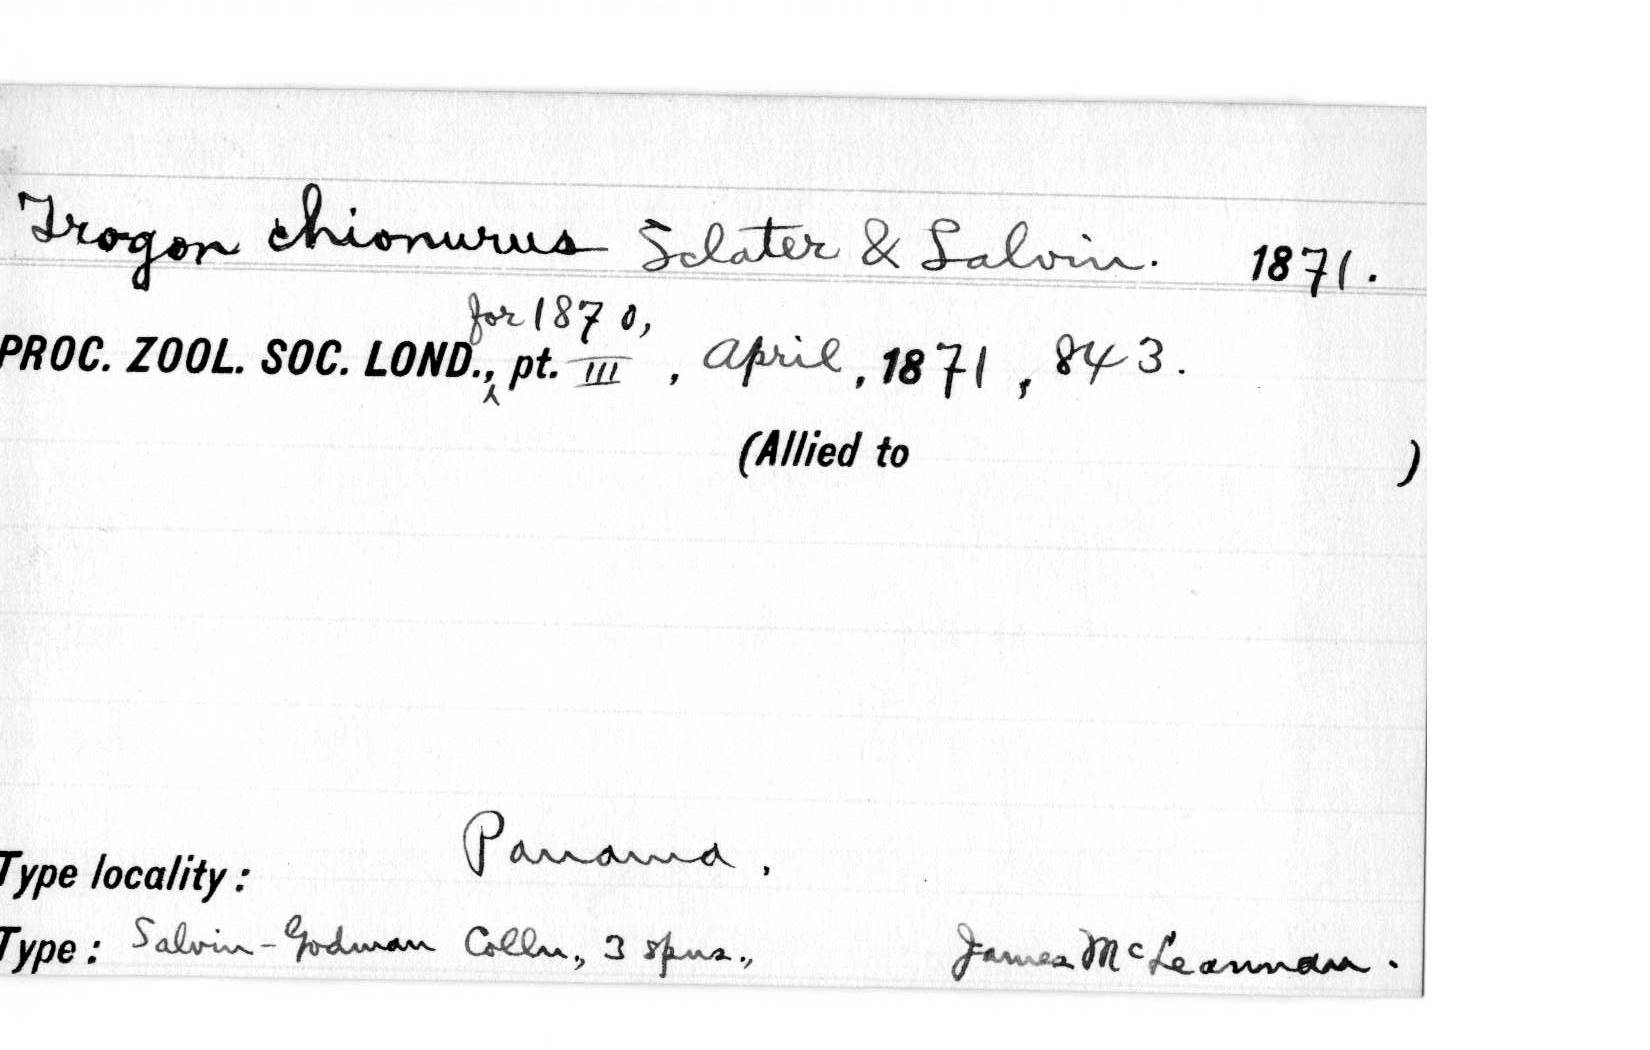 Trogon chionurus Sclater & Salvin. 1871.
for 1870,
PROC. ZOOL. SOC. LOND., pt. III, April, 1871, 843.
(Allied to )
Type locality: Panama,
Type: Salvin-Godman Colln., 3 spns., James McLeannan.